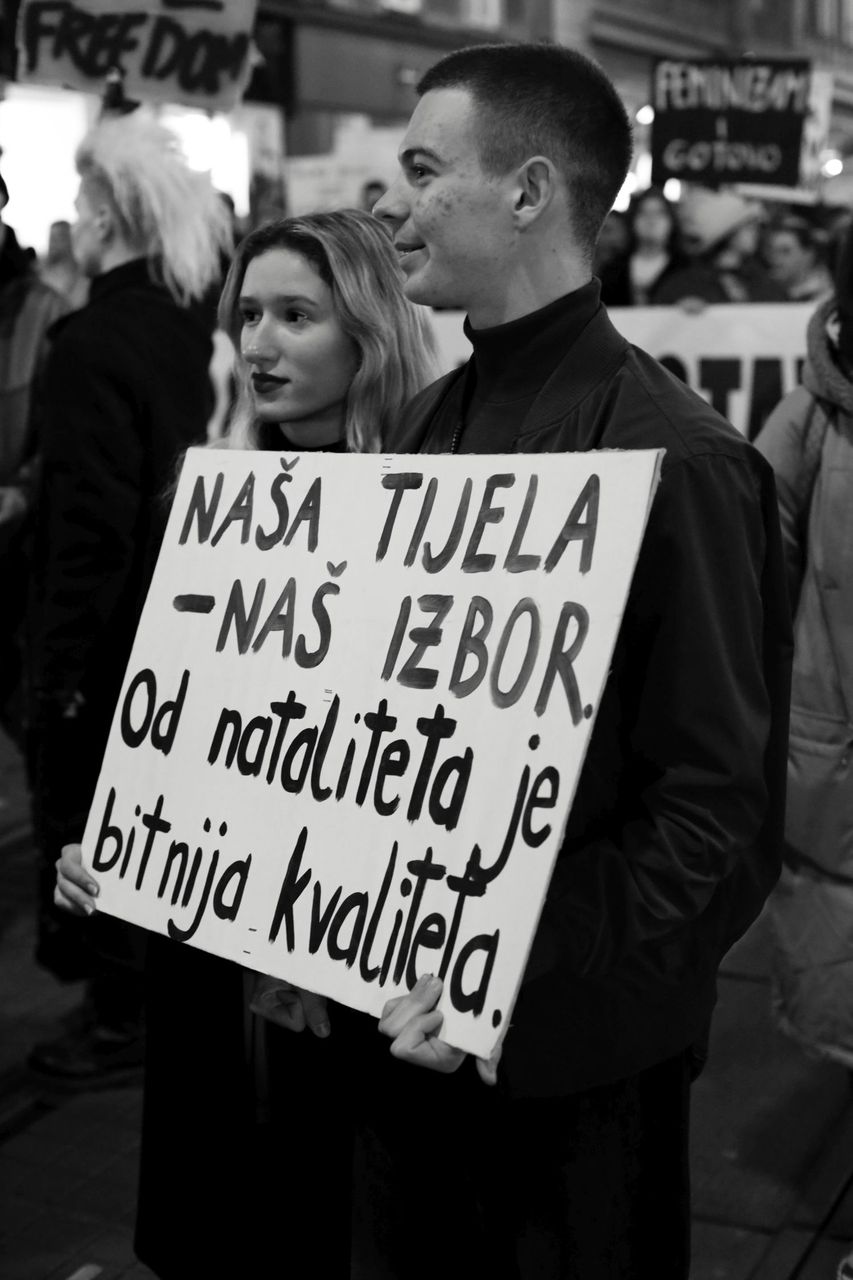 FREEDOM
FEMINIZAM
I
GOTOVO
NAŠA TIJELA
-NAŠ IZBOR.
Od nataliteta je
bitnija kvaliteta.